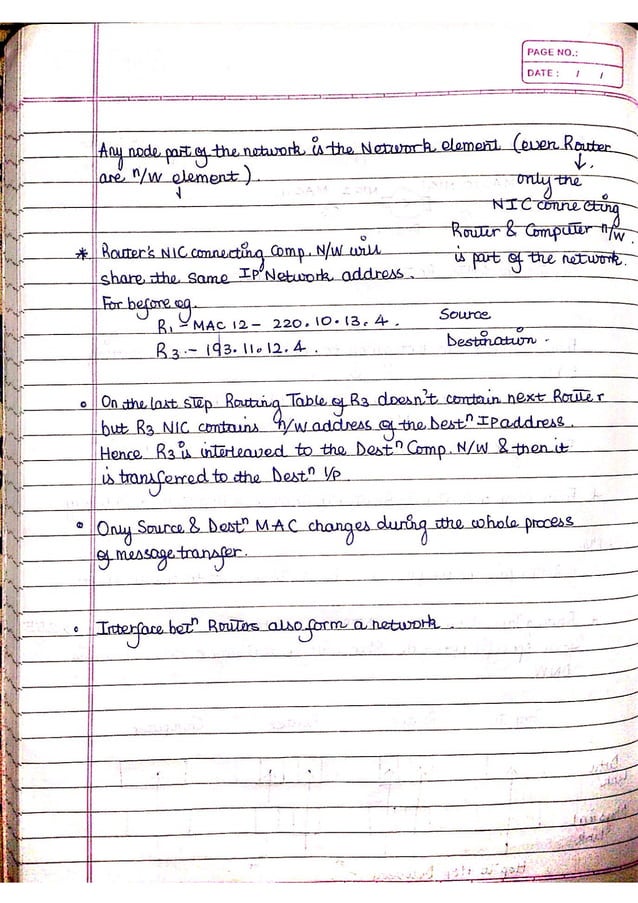 PAGE NO.:
DATE : / /
Any node part of the network is the Network element (even Router
are n/w element).
only the
NIC connecting
Router & Computer n/w.
is part of the network.
* Router's NIC connecting Comp. N/W will
share the same IP Network address.
For before eg.
R1 - MAC 12 - 220.10.13.4. Source
R3. - 193.11.12.4. Destination.
On the last step Routing Table of R3 doesn't contain next Router
but R3 NIC contains n/w address of the Destn IP address.
Hence R3 is interleaved to the Destn Comp. N/W & then it
is transferred to the Destn I/P.
Only Source & Destn MAC changes during the whole process
of message transfer.
Interface betn Routers also form a network.